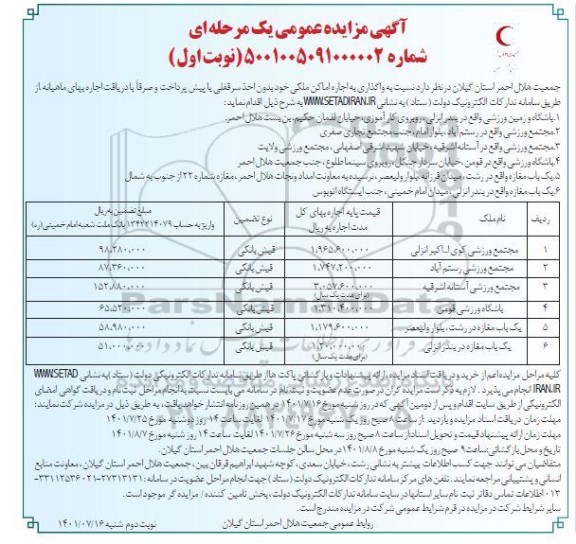 آگهی مزایده عمومی یک مرحله ای
شماره ۵۰۰۱۰۰۵۰۹۱۰۰۰۰۰۲ (نوبت اول)
جمعیت هلال احمر استان گیلان در نظر دارد نسبت به واگذاری به اجاره اماکن ملکی خود بدون اخذ سرقفلی یا پیش پرداخت و صرفاً با دریافت اجاره بهای ماهیانه از
طریق سامانه تدارکات الکترونیک دولت (ستاد) به نشانی WWW.SETADIRAN.IR به شرح ذیل اقدام نماید:
۱. باشگاه و زمین ورزشی واقع در بندر انزلی، روبروی کارآموزی، خیابان لقمان حکیم، بن بست هلال احمر.
۲. مجتمع ورزشی واقع در رستم آباد، بلوار امام، جنب مجتمع تجاری صفری
۳. مجتمع ورزشی واقع در آستانه اشرفیه، خیابان شهید اشرفی اصفهانی، مجتمع ورزشی ولایت
۴. باشگاه ورزشی واقع در فومن، خیابان سردار جنگل، روبروی سینما طلوع، جنب جمعیت هلال احمر
۵. یک باب مغازه واقع در رشت، میدان فرزانه بلوار ولیعصر، نرسیده به معاونت امداد و نجات هلال احمر، مغازه شماره ۲۲ از جنوب به شمال
۶. یک باب مغازه واقع در بندر انزلی، میدان امام خمینی، جنب ایستگاه اتوبوس
ردیف نام ملک قیمت پایه اجاره بهای کل مدت اجاره به ریال نوع تضمین مبلغ تضمین به ریال واریز به حساب ۱۳۴۷۲۱۴۰۷۹ بانک ملت شعبه امام خمینی (ره)
۱ مجتمع ورزشی کوی انزلی ۱،۹۶۵،۶۰۰،۰۰۰ فیش بانکی ۹۸،۲۸۰،۰۰۰
۲ مجتمع ورزشی رستم آباد ۱،۷۴۷،۲۰۰،۰۰۰ فیش بانکی ۸۷،۳۶۰،۰۰۰
۳ مجتمع ورزشی آستانه اشرفیه ۳،۰۵۷،۶۰۰،۰۰۰ (برای مدت یک سال) فیش بانکی ۱۵۲،۸۸۰،۰۰۰
۴ باشگاه ورزشی فومن ۱،۳۱۰،۴۰۰،۰۰۰ فیش بانکی ۶۵،۵۲۰،۰۰۰
۵ یک باب مغازه در رشت، بلوار ولیعصر ۱،۱۷۹،۶۰۰،۰۰۰ فیش بانکی ۵۸،۹۸۰،۰۰۰
۶ یک باب مغازه در بندر انزلی (برای مدت یک سال) فیش بانکی ۵۱،۰۰۰،۰۰۰
ParsNamadData
کلیه مراحل مزایده اعم از خرید و دریافت اسناد مزایده، ارائه پیشنهادات و بازگشایی پاکت ها از طریق سامانه تدارکات الکترونیکی دولت (ستاد) به نشانی WWW.SETAD
IRAN.IR انجام می پذیرد. لازم به ذکر است مزایده گران در صورت عدم عضویت و ثبت نام در سامانه می بایست نسبت به انجام مراحل ثبت نام و دریافت گواهی امضای
الکترونیکی از طریق سایت اقدام و پس از دومین آگهی که در روز شنبه مورخ ۱۴۰۱/۷/۱۶ در همین روزنامه انتشار خواهد یافت، به طریق ذیل در مزایده شرکت نمایند:
مهلت زمان دریافت اسناد مزایده و بازدید از ساعت ۸ صبح روز یک شنبه مورخ ۱۴۰۱/۷/۱۷ لغایت ساعت ۱۴ روز دوشنبه مورخ ۱۴۰۱/۷/۲۵
مهلت زمان ارائه پیشنهاد قیمت و تحویل اسناد از ساعت ۸ صبح روز سه شنبه مورخ ۱۴۰۱/۷/۲۶ لغایت ساعت ۱۴ روز شنبه مورخ ۱۴۰۱/۸/۷
تاریخ و محل بازگشایی: ساعت ۹ صبح روز یک شنبه مورخ ۱۴۰۱/۸/۸ در محل سالن جلسات جمعیت هلال احمر استان گیلان.
متقاضیان می توانند جهت کسب اطلاعات بیشتر به نشانی رشت، خیابان سعدی، کوچه شهید ابراهیم قرقان بین، جمعیت هلال احمر استان گیلان، معاونت منابع
انسانی و پشتیبانی مراجعه نمایند. تلفن های مرکز سامانه تدارکات الکترونیک دولت (ستاد) جهت انجام مراحل عضویت در سامانه:
۰۱۳ اطلاعات تماس دفاتر ثبت نام سایر استانها در سایت سامانه تدارکات الکترونیک دولت، بخش تامین کننده / مزایده گر موجود است.
سایر شرایط شرکت در مزایده در فرم شرایط عمومی شرکت در مزایده مندرج است.
روابط عمومی جمعیت هلال احمر استان گیلان
نوبت دوم شنبه ۱۴۰۱/۰۷/۱۶